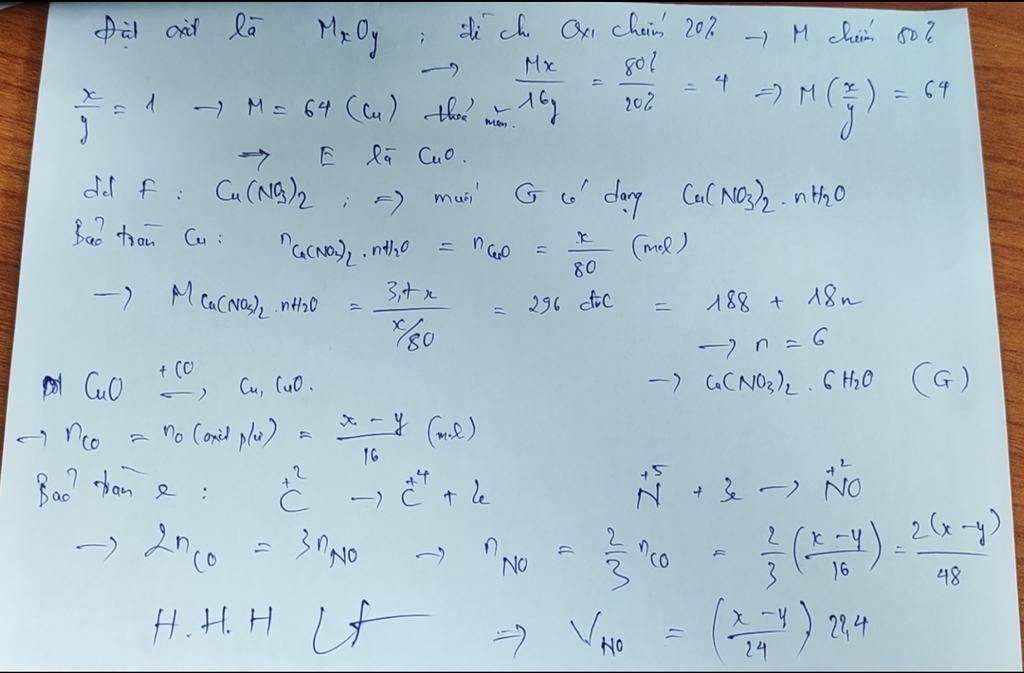 Đặt oxit là MxOy ; đề cho Oxi chiếm 20% → M chiếm 80%
→ Mx/16y = 80%/20% = 4 ⇒ M(x/y) = 64
x/y = 1 → M = 64 (Cu) thoả mãn.
⇒ E là CuO.
dd F : Cu(NO3)2 ; ⇒ muối G có dạng Cu(NO3)2 . nH2O
Bảo toàn Cu : nCu(NO3)2 . nH2O = nCuO = x/80 (mol)
→ MCu(NO3)2 . nH2O = 3,7x / x/80 = 296 đvC = 188 + 18n
→ n = 6
→ Cu(NO3)2 . 6H2O (G)
CuO +CO → Cu, CuO.
→ nCO = nO (oxit p/ư) = x - y / 16 (mol)
Bảo toàn e : +2 C → +4 C + 2e +5 N + 3e → +2 NO
→ 2nCO = 3nNO → nNO = 2/3 nCO = 2/3 (x - y / 16) = 2(x - y) / 48
H.H.H ⇒ VNO = (x - y / 24) 22,4